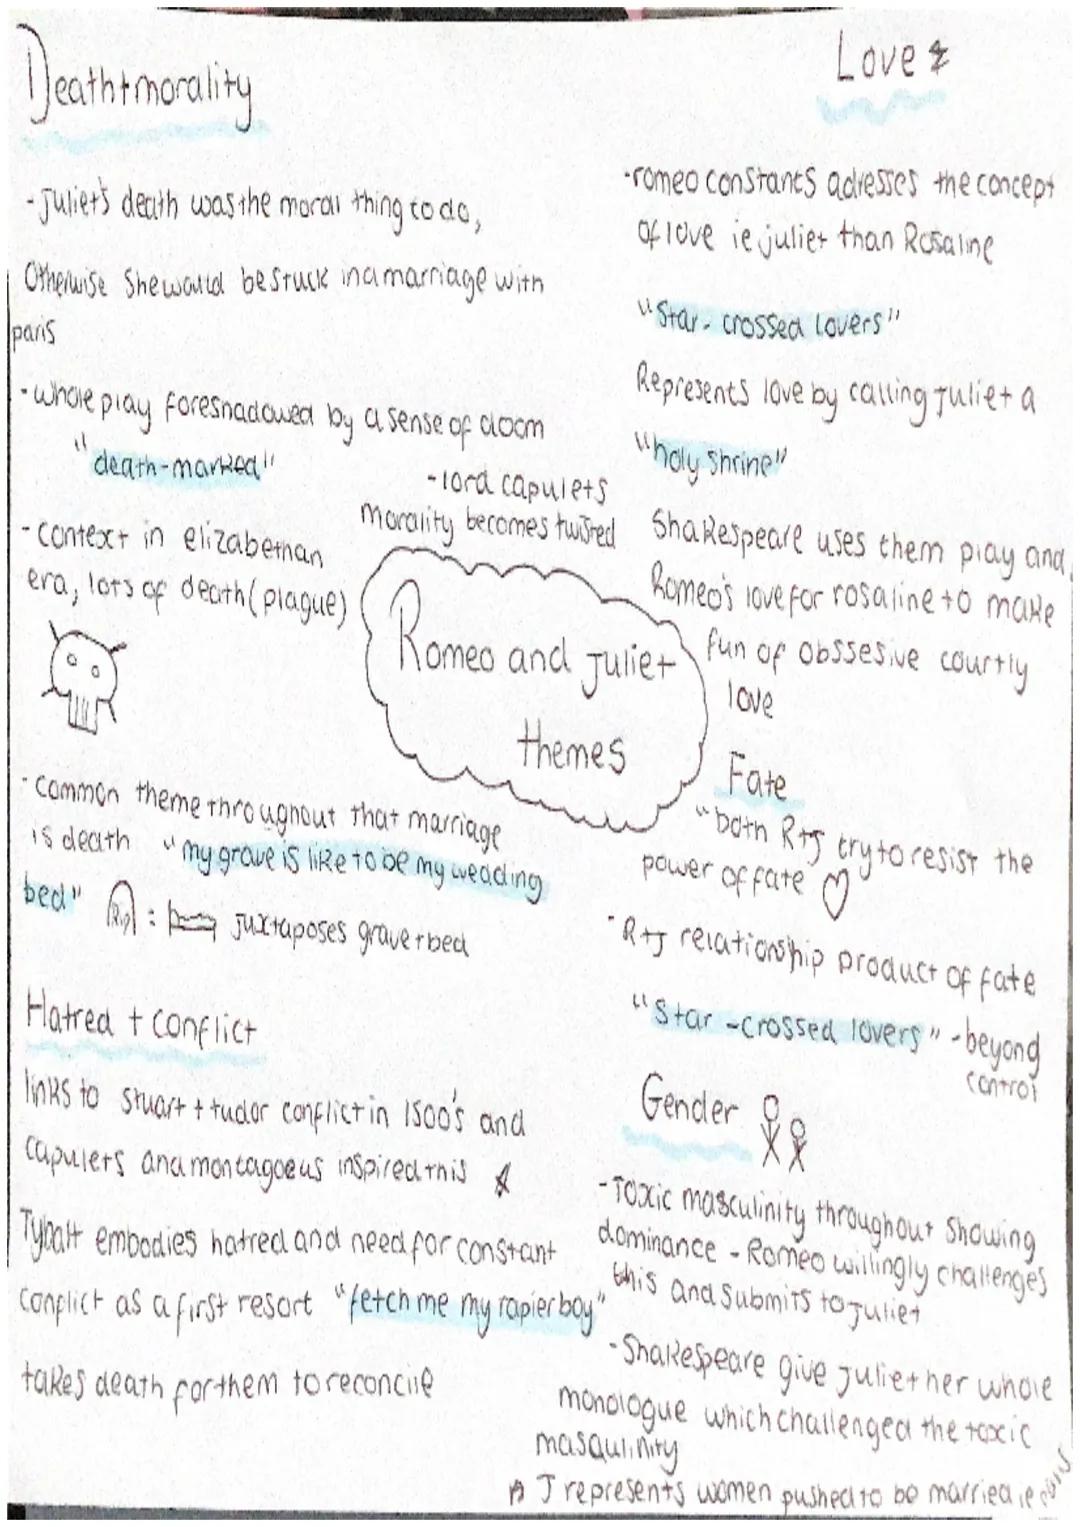 Death+morality
- Juliet's death was the moral thing to do,
Otherwise she would be stuck in a marriage with
paris
- whole play foresnadowed by a sense of doom
"death-marked"
- lord capulets
morality becomes twisted
- context in elizabethan
era, lots of death (plague)
Romeo and Juliet
themes
- common theme throughout that marriage
is death "my grave is like to be my wedding
bed" Rip : juxtaposes grave + bed
Hatred + conflict
links to stuart + tudor conflict in 1500's and
capulets and montagoeus inspired this
Tybalt embodies hatred and need for constant
conflict as a first resort "fetch me my rapier boy"
takes death for them to reconcile
Love &
- romeo constants adresses the concept
of love ie juliet than Rosaline
"Star-crossed lovers"
Represents love by calling Juliet a
"holy shrine"
Shakespeare uses them play and
Romeo's love for rosaline to make
fun of obssesive courtly
love
Fate
"both R+J try to resist the
power of fate
- R+J relationship product of fate
"Star-crossed lovers" - beyond
control
Gender
- Toxic masculinity throughout showing
dominance - Romeo willingly challenges
this and submits to Juliet
- Shakespeare give Juliet her whole
monologue which challenged the toxic
masqulinity
J represents women pushed to be married ie paris